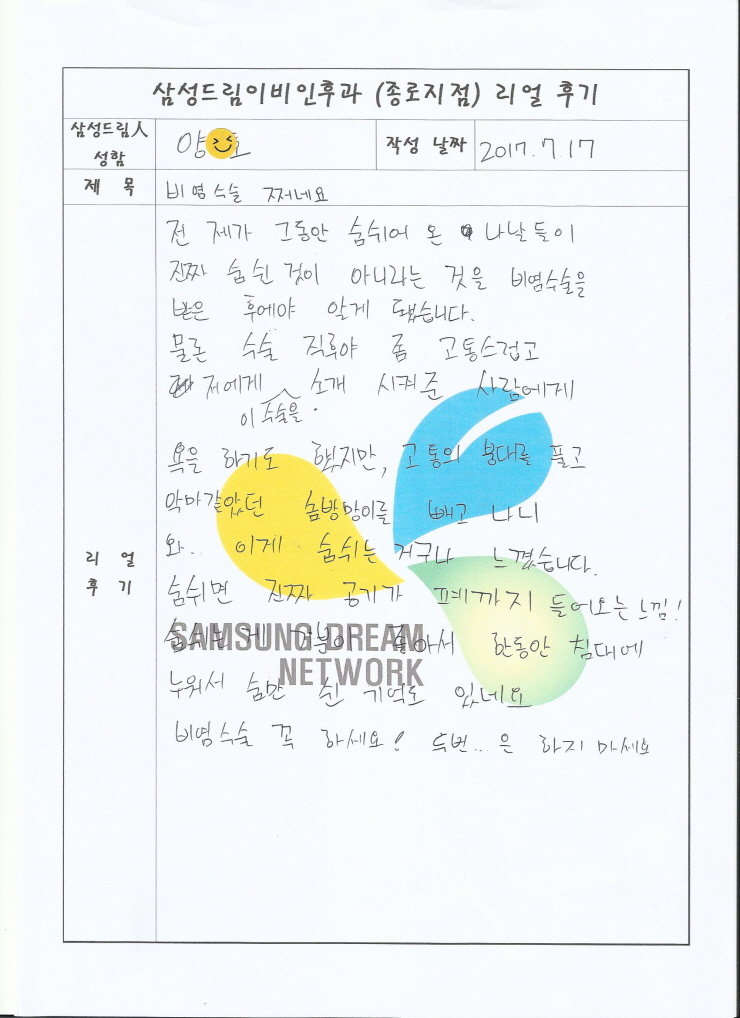 삼성드림이비인후과 (종로지점) 리얼 후기
삼성드림人 성함
양 호
작성 날짜
2017.7.17
제 목
비염수술 쩌네요
리 얼 후 기
전 제가 그동안 숨쉬어 온 나날들이
진짜 숨쉰 것이 아니라는 것을 비염수술을
받은 후에야 알게 됐습니다.
물론 수술 직후야 좀 고통스럽고
저에게 이 수술을 소개 시켜준 사람에게
욕을 하기도 했지만, 고통의 붕대를 풀고
악마같았던 솜방망이를 빼고 나니
와.. 이게 숨쉬는 거구나 느꼈습니다.
숨쉬면 진짜 공기가 폐까지 들어오는 느낌!
숨쉬는게 기분이 좋아서 한동안 침대에
누워서 숨만 쉰 기억도 있네요
비염수술 꼭 하세요! 두번...은 하지 마세요
SAMSUNG DREAM
NETWORK